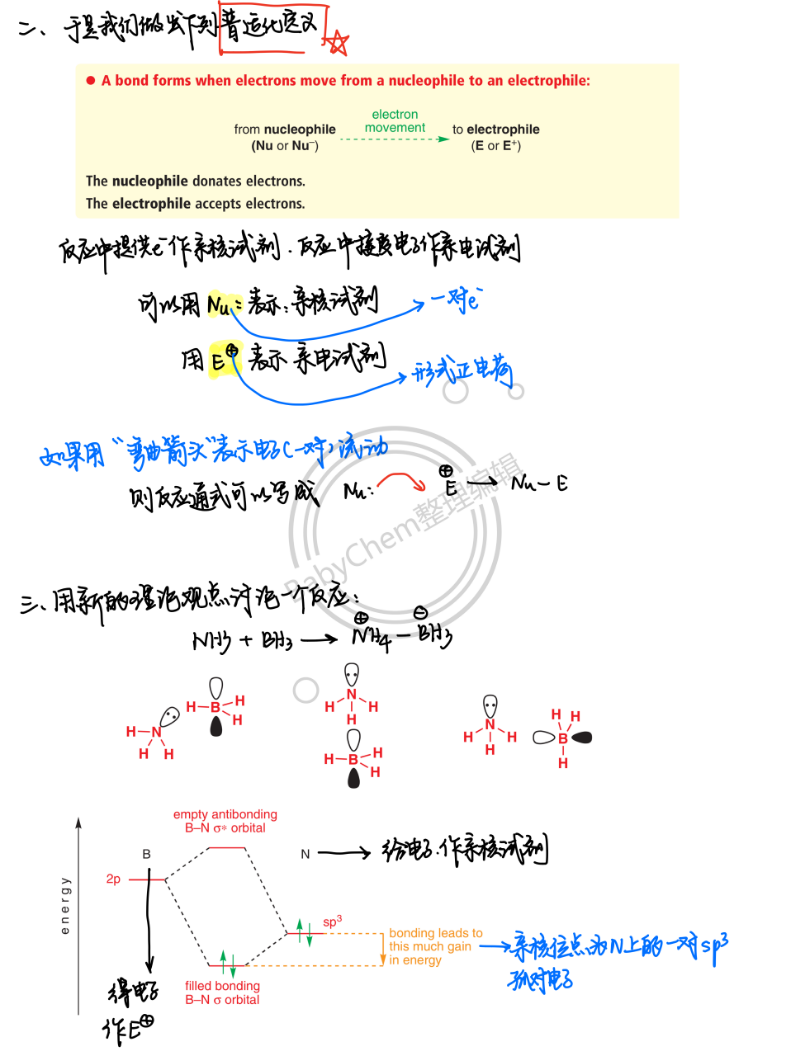 二、于是我们做出下列普适化定义
● A bond forms when electrons move from a nucleophile to an electrophile:
electron
from nucleophile movement to electrophile
(Nu or Nu⁻) (E or E⁺)
The nucleophile donates electrons.
The electrophile accepts electrons.
反应中提供e⁻作亲核试剂．反应中接受电子作亲电试剂
可以用 Nu: 表示：亲核试剂 → 一对e⁻
用 E⊕ 表示 亲电试剂 → 形式正电荷
如果用“弯曲箭头”表示电子(一对)流动
则反应通式可以写成 Nu: ⊕E → Nu-E
BabyChem整理编辑
三、用新的理论观点讨论一个反应：
⊕ ⊖
NH3 + BH3 → NH4 - BH3
N H
H-B H
H-N H
H H
H N H
H
H-B H
H
H N H
H
H H
B
H
empty antibonding
B–N σ* orbital
B N → 给电子．作亲核试剂
2p
energy
sp³
bonding leads to
this much gain
in energy
→ 亲核位点为N上的一对sp³
孤对电子
filled bonding
B–N σ orbital
得电子
作E⊕